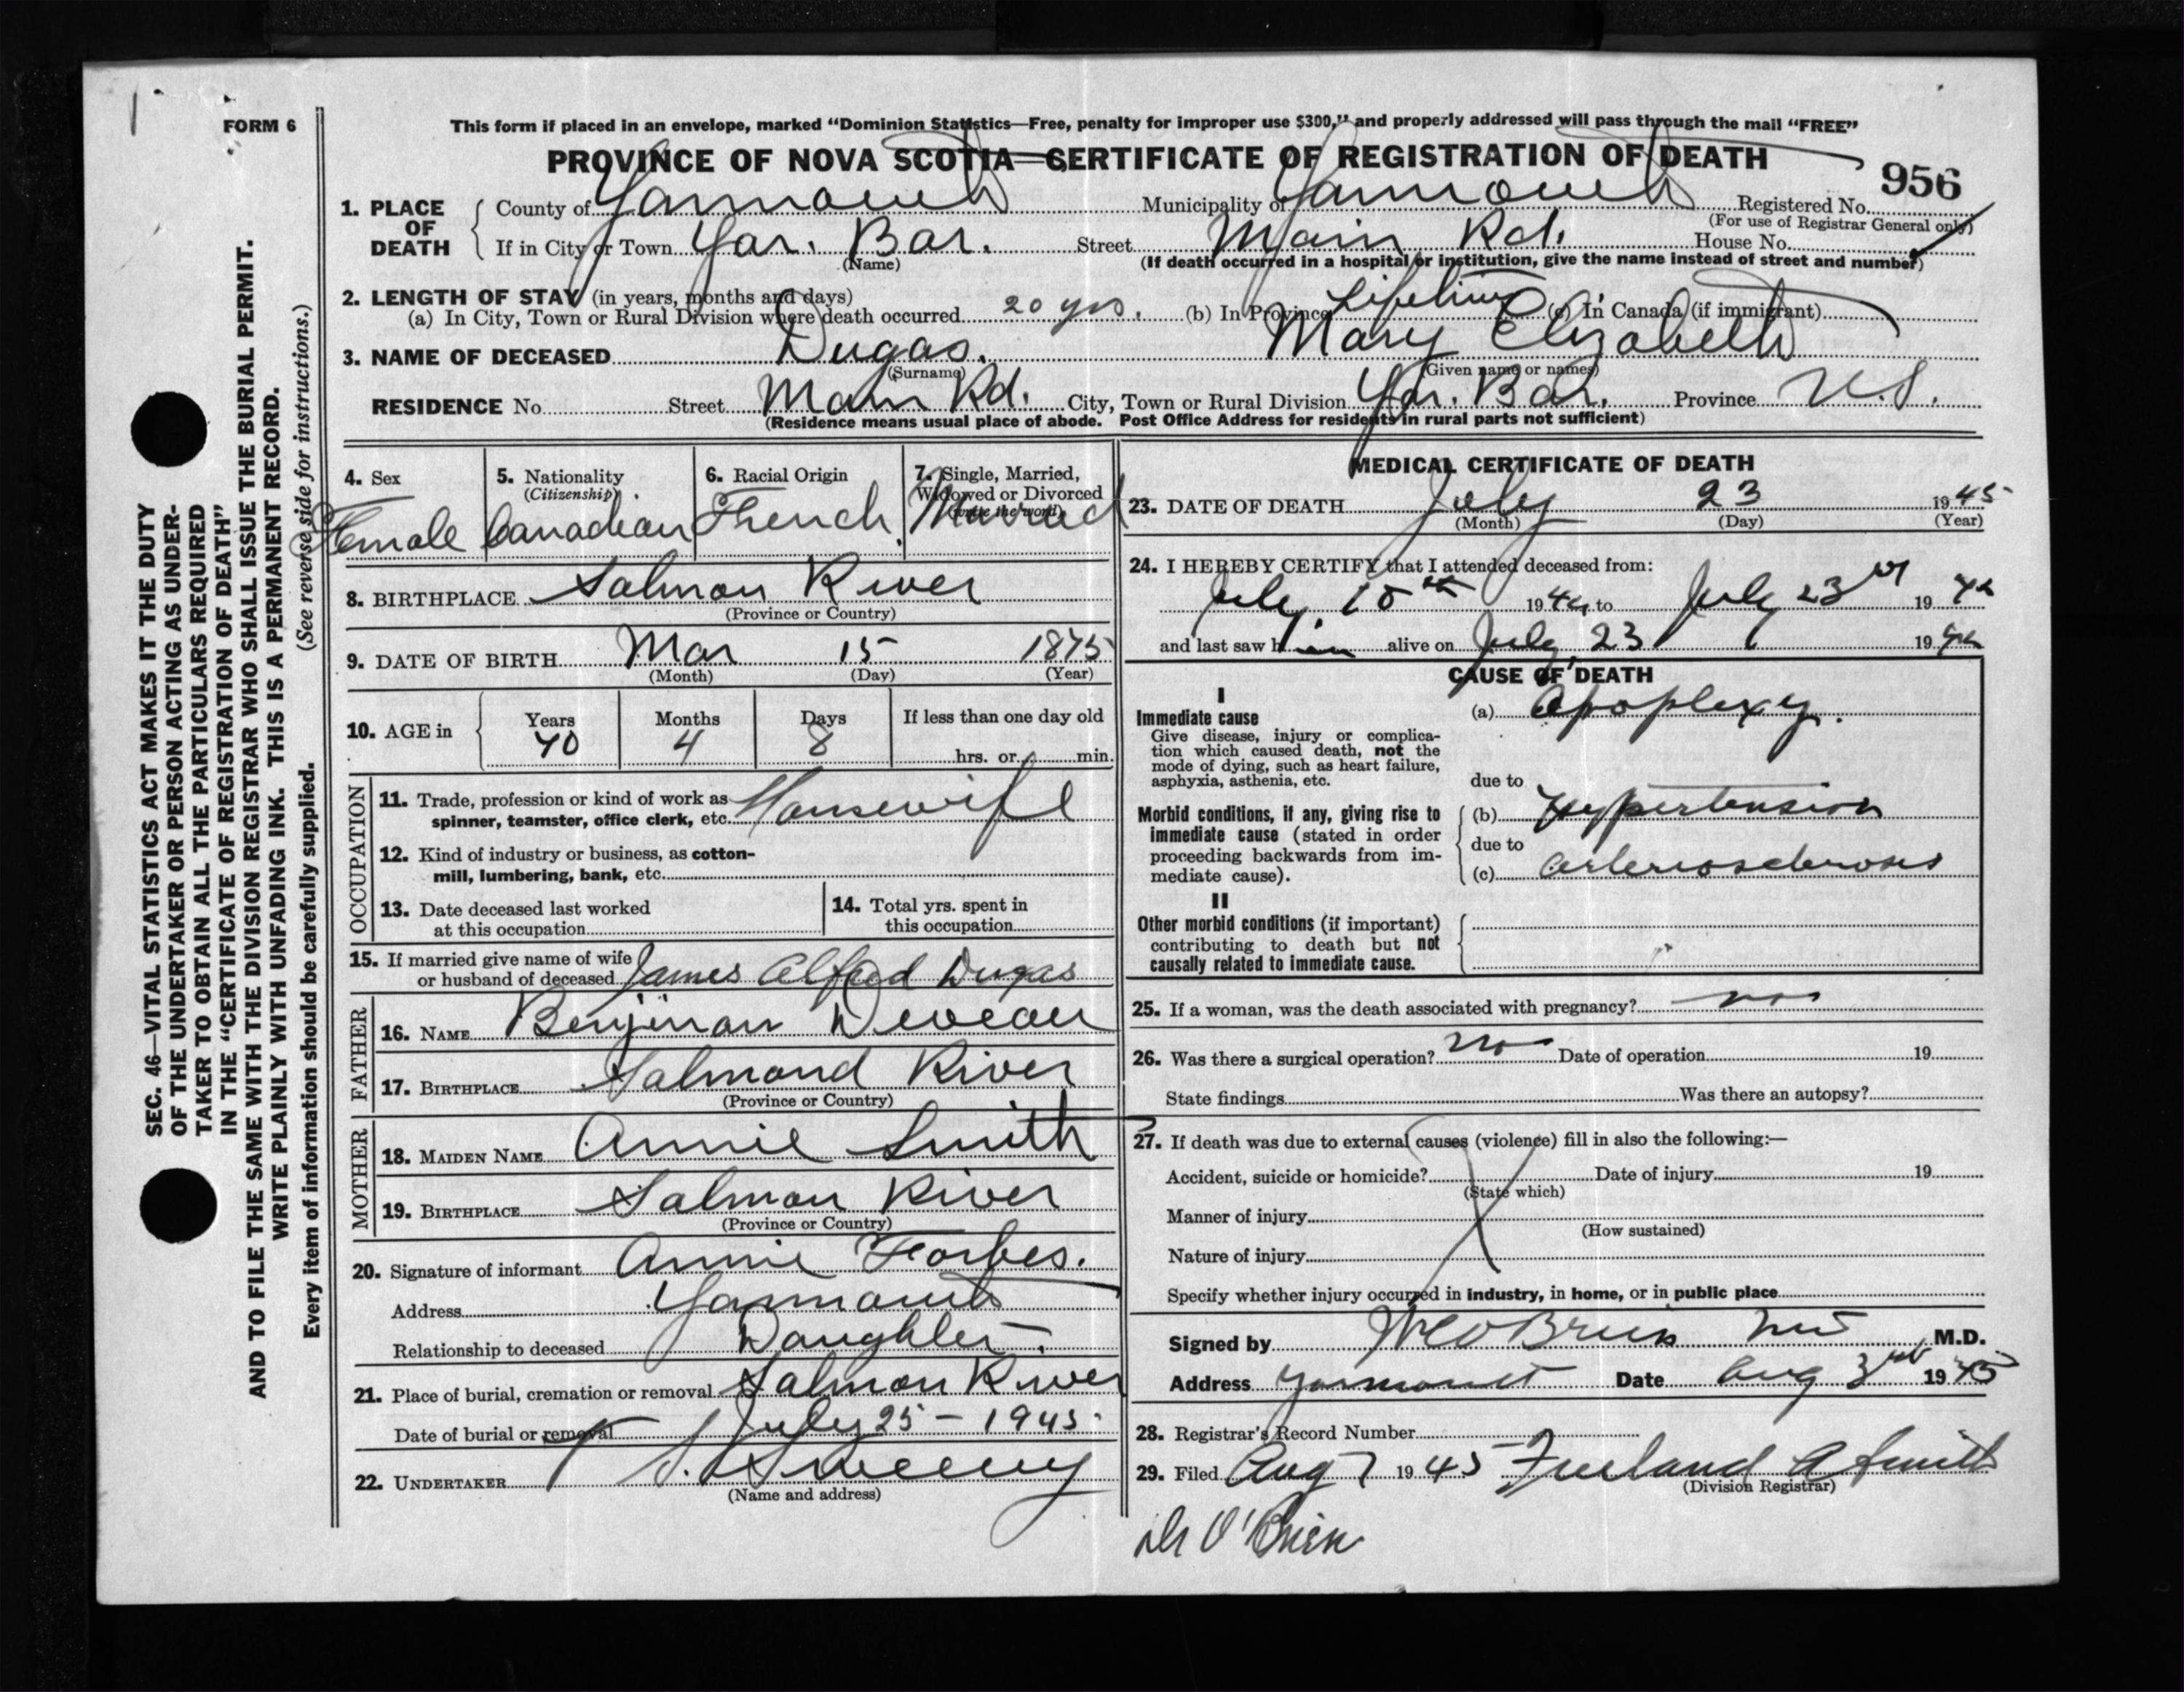 FORM 6
This form if placed in an envelope, marked “Dominion Statistics—Free, penalty for improper use $300,” and properly addressed will pass through the mail “FREE”
PROVINCE OF NOVA SCOTIA—CERTIFICATE OF REGISTRATION OF DEATH
956
1. PLACE OF DEATH
County of Yarmouth Municipality of Yarmouth Registered No.
(For use of Registrar General only)
If in City or Town Yar. Bar. Street Main Rd. House No.
(Name) (If death occurred in a hospital or institution, give the name instead of street and number)
2. LENGTH OF STAY (in years, months and days)
(a) In City, Town or Rural Division where death occurred 20 yrs. (b) In Province Lifetime (c) In Canada (if immigrant)
3. NAME OF DECEASED Dugas. Mary Elizabeth
(Surname) (Given name or names)
RESIDENCE No. Street Main Rd. City, Town or Rural Division Yar. Bar. Province N.S.
(Residence means usual place of abode. Post Office Address for residents in rural parts not sufficient)
4. Sex
Female
5. Nationality
(Citizenship)
Canadian
6. Racial Origin
French
7. Single, Married,
Widowed or Divorced
(write the word)
Married
8. BIRTHPLACE Salmon River
(Province or Country)
9. DATE OF BIRTH Mar 15 1875
(Month) (Day) (Year)
10. AGE in
Years Months Days If less than one day old
70 4 8
hrs. or min.
OCCUPATION
11. Trade, profession or kind of work as
spinner, teamster, office clerk, etc. Housewife
12. Kind of industry or business, as cotton-
mill, lumbering, bank, etc.
13. Date deceased last worked
at this occupation
14. Total yrs. spent in
this occupation
15. If married give name of wife
or husband of deceased James Alfred Dugas
FATHER
16. NAME Benjiman Deveau
17. BIRTHPLACE Salmond River
(Province or Country)
MOTHER
18. MAIDEN NAME Annie Smith
19. BIRTHPLACE Salmon River
(Province or Country)
20. Signature of informant Annie Forbes.
Address Yarmouth
Relationship to deceased Daughter.
21. Place of burial, cremation or removal Salmon River
Date of burial or removal July 25 - 1945.
22. UNDERTAKER Sweeny
(Name and address)
MEDICAL CERTIFICATE OF DEATH
23. DATE OF DEATH July 23 1945
(Month) (Day) (Year)
24. I HEREBY CERTIFY that I attended deceased from:
July 1944, to July 23rd 19
and last saw h alive on July 23 19
CAUSE OF DEATH
I
Immediate cause
Give disease, injury or complica-
tion which caused death, not the
mode of dying, such as heart failure,
asphyxia, asthenia, etc.
(a) Apoplexy.
due to
Morbid conditions, if any, giving rise to
immediate cause (stated in order
proceeding backwards from im-
mediate cause).
(b) Hypertension
due to
(c) arteriosclerosis
II
Other morbid conditions (if important)
contributing to death but not
causally related to immediate cause.
25. If a woman, was the death associated with pregnancy? no
26. Was there a surgical operation? no Date of operation 19
State findings Was there an autopsy?
27. If death was due to external causes (violence) fill in also the following:—
Accident, suicide or homicide? Date of injury 19
(State which)
Manner of injury
(How sustained)
Nature of injury
Specify whether injury occurred in industry, in home, or in public place
Signed by O'Brien M.D.
Address Yarmouth Date Aug 3rd 1945
28. Registrar's Record Number
29. Filed Aug 7 1945 Freeland A Smith
(Division Registrar)
Dr O'Brien
SEC. 46—VITAL STATISTICS ACT MAKES IT THE DUTY
OF THE UNDERTAKER OR PERSON ACTING AS UNDER-
TAKER TO OBTAIN ALL THE PARTICULARS REQUIRED
IN THE “CERTIFICATE OF REGISTRATION OF DEATH”
AND TO FILE THE SAME WITH THE DIVISION REGISTRAR WHO SHALL ISSUE THE BURIAL PERMIT.
WRITE PLAINLY WITH UNFADING INK. THIS IS A PERMANENT RECORD.
Every item of information should be carefully supplied. (See reverse side for instructions.)